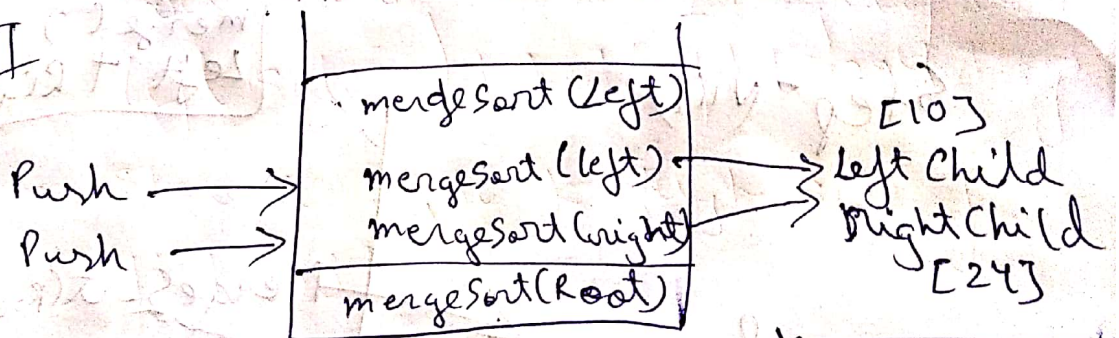 I
mergeSort (Left)
[10]
Push
mergeSort (left)
Left Child
Push
mergeSort (right)
Right Child
[24]
mergeSort (Root)